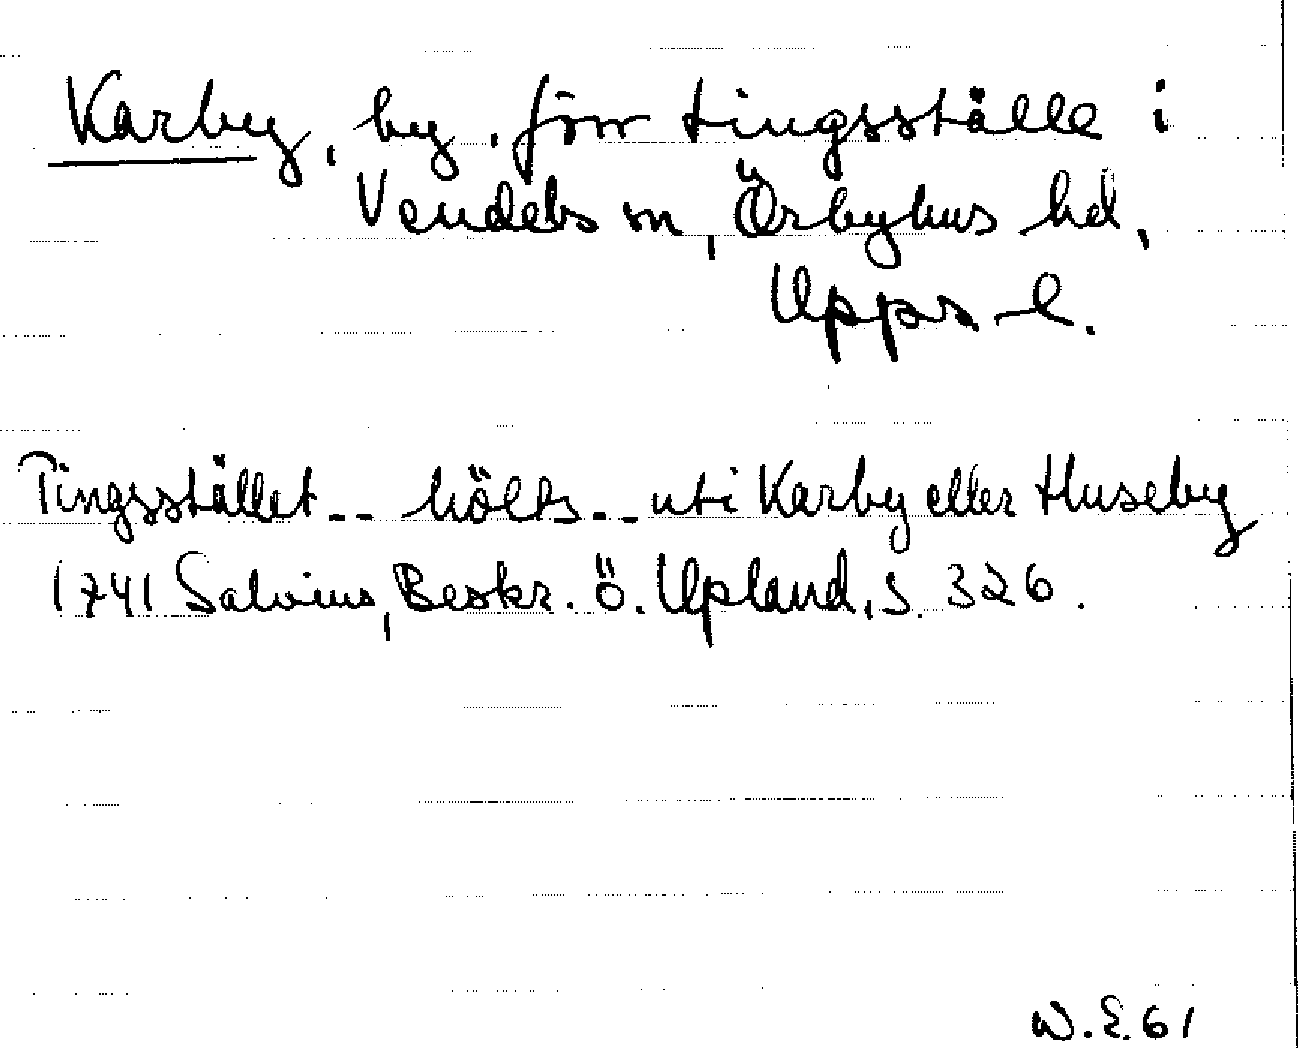 Karby, by, förr tingsställe i
Vendels sn, Örbyhus hd,
Upps. l.
Tingsstället -- hölts -- uti Karby eller Huseby
1741 Salvius, Beskr. ö. Upland, s. 326.
W.E. 61